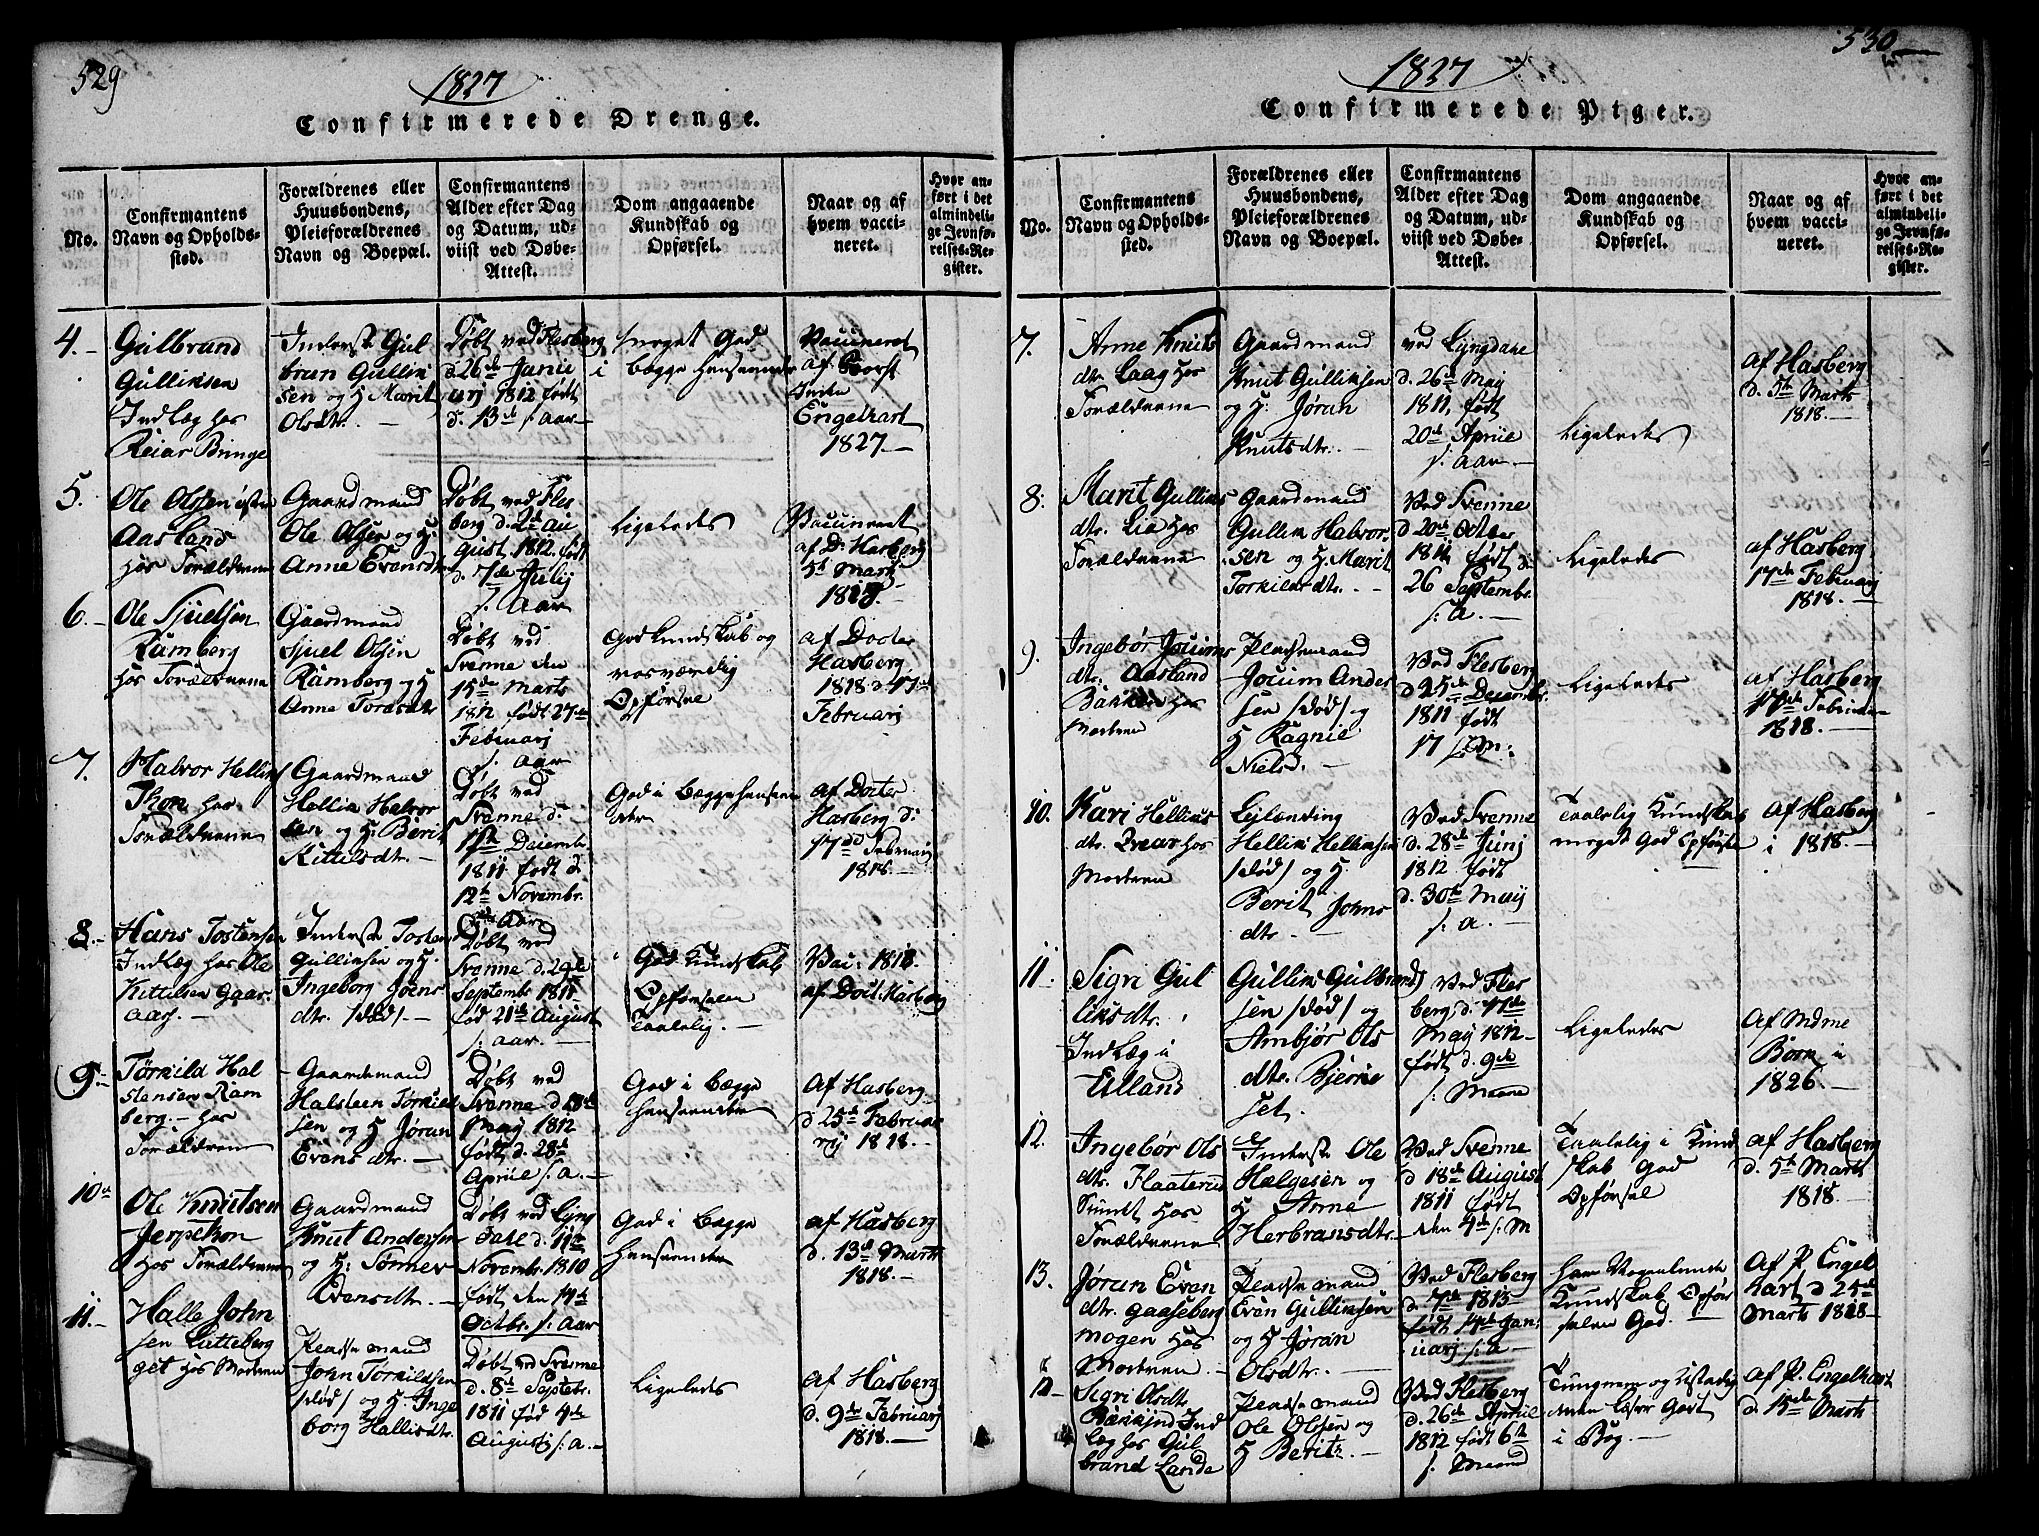 529
1827
Confirmerede Drenge.
No.
Confirmantens
Navn og Opholds-
sted.
Forældrenes eller
Huusbondens,
Pleieforældrenes
Navn og Boepæl.
Confirmantens
Alder efter Dag
og Datum, ud-
viist ved Døbe-
Attest.
Dom angaaende
Kundskab og
Opførsel.
Naar og af
hvem vacci-
neret.
Hvor an-
ført i det
almindeli-
ge Jevnfø-
relses-Re-
gister.
4.-
Gulbrand
Gullinsen
Indlæg hos
Reiar Bringe
Inderste Gul
bran Gullin
sen og H Marit
Olsdtr. -
Døbt ved Flesberg
d. 26de Janu
arj 1812 født
d. 13de s. aar -
meget God
i begge henseender
Vaccineret
af
Engelhart
1827. -
5.
Ole Olsen
Aasland
hos Forældrene
Gaardmand
Ole Olsen og H.
Anne Evensdtr
Døbt ved Fles
berg d. 2de Au
gust 1812. født
d. 7de Julij
s. Aar
Ligeledes
Vaccineret
af Dr Hasberg
5te Martj
1818. -
6. -
Ole Sjulsen
Ramberg
hos Forældrene
Gaardmand
Sjuel Olsen
Ramberg og H
Anne Toresdtr
Døbt ved
Svenne den
15de Marts
1812 født 27de
Februarj
s. aar
God Kundskab og
rosværdig
Opførsel
af Docter
Hasberg
1818 d 17de
Februarj
7.
Halvor Hellins
Thon hos
Forældrene
Gaardmand
Hellin Halvor
sen og H. Berit
Kittilsdtr. -
Døbt ved
Svenne d.
1ste Decembr.
1811 født d.
12te Novembr.
s. Aar
God i begge henseen
der
af Docter
Hasberg d:
17de Februarj
1818. -
8. -
Hans Tostensen
Indlæg hos Ole
Kittilsen Gaar.
aas. -
Inderste Tosten
Gullinsen og H.
Ingeborg Joens
dtr. /død/ -
Døbt ved
Svenne d. 29de
Septembr 1811
fød 21de August
s. aar. -
God Kundskab
Opførselen
Taalelig. -
Vac: 1818.
af Doct. Hasberg
9. -
Törkild Hal
stensen Ram
berg. - hos
Forældrene
Gaardemand
Halsteen Törkild
sen og H Jøran
Evens dtr. -
Døbt ved
Svenne d 18de
May 1812
født d. 28de
April s. a. -
God i begge
henseender
Af Hasberg
d 25de Februa
rij 1818. -
10de
Ole Knudtsen
Jerpekon
hos Forældrene
Gaardmand
Knut Andersen
og H: Tönner
Evensdtr. -
Døbt ved Lyng
dahl d. 11te
Novembr. 1810
født den 14de
Octbr. s. aar
God i begge
henseender
af Hasberg
d. 13de Marts
1818. -
11. -
Halle John
sen Lutteberg
get hos Moderen
Pladsemand
John Törkildsen
/død/ og H. Inge
borg Hallisdtr.
Døbt ved Svenne
d. 8de Septbr.
1811 fød 4de
Augustj s. a. -
Ligeledes
af Hasberg
d. 9de Februarj
1818. -
530
1827
Confirmerede Piger.
No.
Confirmantens
Navn og Opholds-
sted.
Forældrenes eller
Huusbondens,
Pleieforældrenes
Navn og Boepæl.
Confirmantens
Alder efter Dag
og Datum, ud-
viist ved Døbe-
Attest.
Dom angaaende
Kundskab og
Opførsel.
Naar og af
hvem vacci-
neret.
Hvor an-
ført i det
almindeli-
ge Jevnfø-
relses-Re-
gister.
7.
Anne Knuts
dtr. Laag hos
Forældrene
Gaardmand
Knut Gullinsen
og H. Jøran
Knutsdtr. -
ved Lyngdahl
d. 26de May
1811, født
20de April
s. aar. -
Ligeledes
af Hasberg
d. 5te Marts
1818. -
8.
Marit Gullins
dtr. Lia hos
Forældrene
Gaardmand
Gullin Halvor.
sen og H. Marit
Torkildsdtr. -
Ved Svenne
d. 20de Octber
1811 født d:
26 Septembr.
s. a. -
Ligeledes
af Hasberg
17de Februarj
1818. -
9.
Ingebør Jocums
dtr. Aasland
Bakken hos
Moderen
Pladsemand
Jocum Ander
sen /død/ og
H Ragnil
Nielsd. -
Ved Flesberg
d 25de Decembr.
1811 født
17 s. M:
Ligeledes
af Hasberg
17de Februar
1818. -
10.
Kari Hellins
dtr. hos
Moderen
Lejlænding
Hellin Hellinsen
/død/ og H.
Berit Johns
dtr. -
Ved Svenne
d. 28de Junj
1812 født
d. 30te May
s. a. -
Taalelig Kundskab
meget God Opførsel
af Hasberg
i 1818. -
11
Sigri Gul
linsdtr.
Indlæg i
Lilland
Gullin Gulbrand
sen /død/ og
Ambjør Ols
dtr. Bjerne
set.
Ved Fles
berg, d. 17de
May 1812 -
født d. 9de
s. Maane
Ligeledes
Af Mdme
Bork i
1826. -
12.
Ingebør Ols
dtr. Flaaterud
Sundet hos
Forældrene
Inderste Ole
Helgesen og
H Anne
Herbransdtr. -
Ved Svenne
d 18de August
1811 født
den 4de s. M
Taalelig i Kund
skab God
Opførsel
af Hasberg
d. 5te Marts
1818. -
13.
Jøran Even
dtr. Gaaseberg
mogen hos
Moderen
Pladsemand
Even Gullinsen
og H Jøran
Olsdtr. -
Ved Flesberg
d. 7de 1813
født 14de Jan:
uarj s. a -
Kundskab Opfør
selen God. -
Af P. Engel
hart d 25de
Marts 1828 -
12 -
Sigri Olsdtr
Ind
læg hos Gul
brand Lande
Pladsemand
Ole Olsen og
H Berit
Ved Flesberg
d. 26de April
1812 født 6te
s. Maaned
Tungnem og Ustadig
men læser Godt
i Bog. -
af P. Engelhart
d. 15de Marts